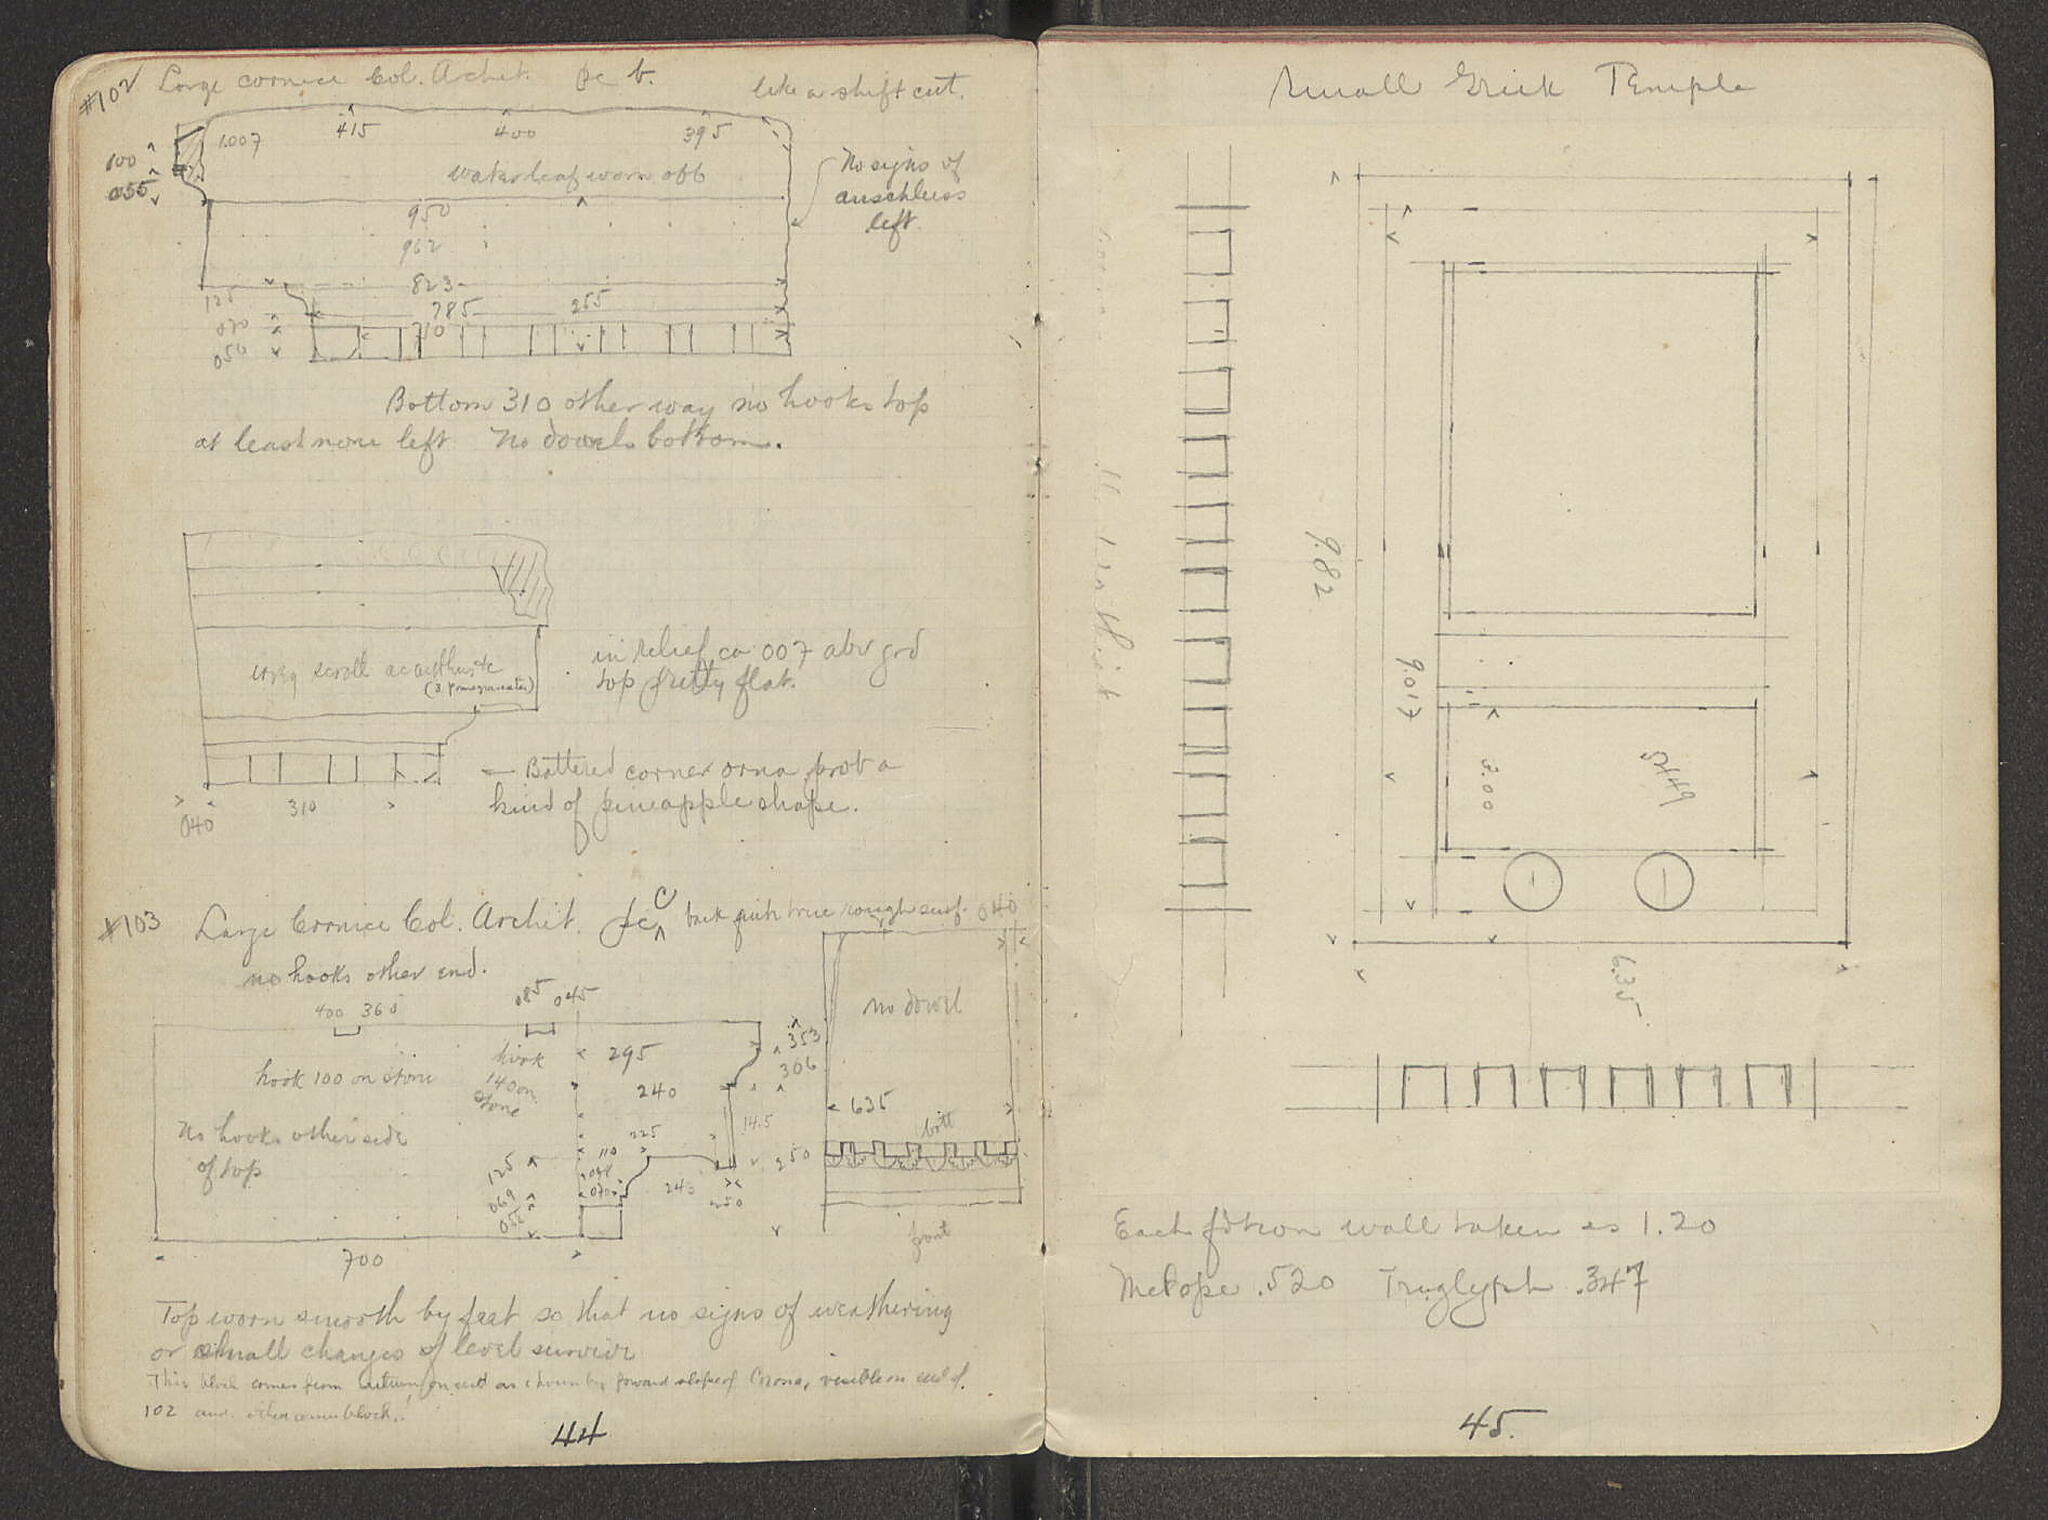 #102 Large cornice Col. Archit. pc b.
like a shift cut.
1.007 415 400 395
100
055
waterleaf worn off
No signs of
anschluss
left.
950
962
823
125 785 255
070 710
050
Bottom 310 other way no hooks top
at least none left No dowels bottom.
scroll acanthus etc
(3 pomegranates)
in relief ca 007 abv grd
top pretty flat.
310
040
— Battered corner orna prob a
kind of pineapple shape.
#103 Large Cornice Col. Archit. pc C back quite true rough surf. 040
no hooks other end.
400 360
085 045
no dowel
353
306
hook 295
hook 100 on stone
140 on
stone
240
635
14.5
No hooks other side
of top
225
bott
110
125
250
069
240
front
700
Top worn smooth by feet so that no signs of weathering
or small changes of level survive
This block comes from as shown by forward slope of Corona, visible on
102 and other corner block.
44
Small Greek Temple
9.82
9.017
3.00
5449
6.35
Each wall taken as 1.20
Metope .520 Triglyph .347
45.